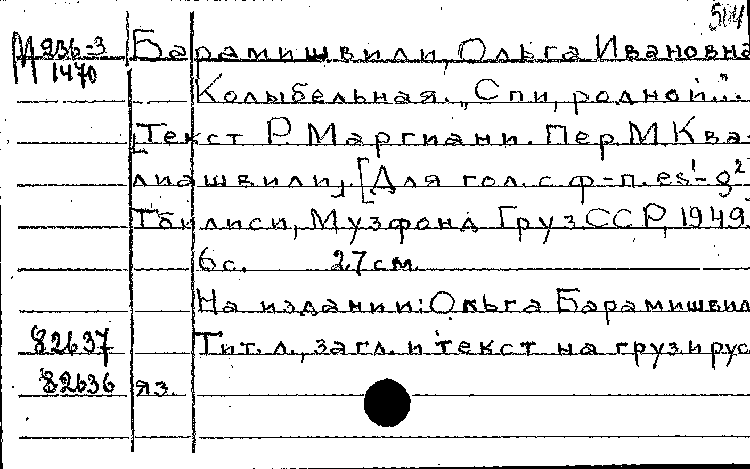 504
М 936-3 Барамишвили, Ольга Ивановна
1470
Колыбельная. „Спи, родной...".
[Текст Р. Маргиани. Пер. М. Ква-
лиашвили]. [Для гол. с ф-п. es¹-g²]
Тбилиси, Музфонд Груз.ССР, 1949.
6 с. 27 см.
На издании: Ольга Барамишвил
82637 Тит. л., загл. и текст на груз. и рус.
82636 яз.